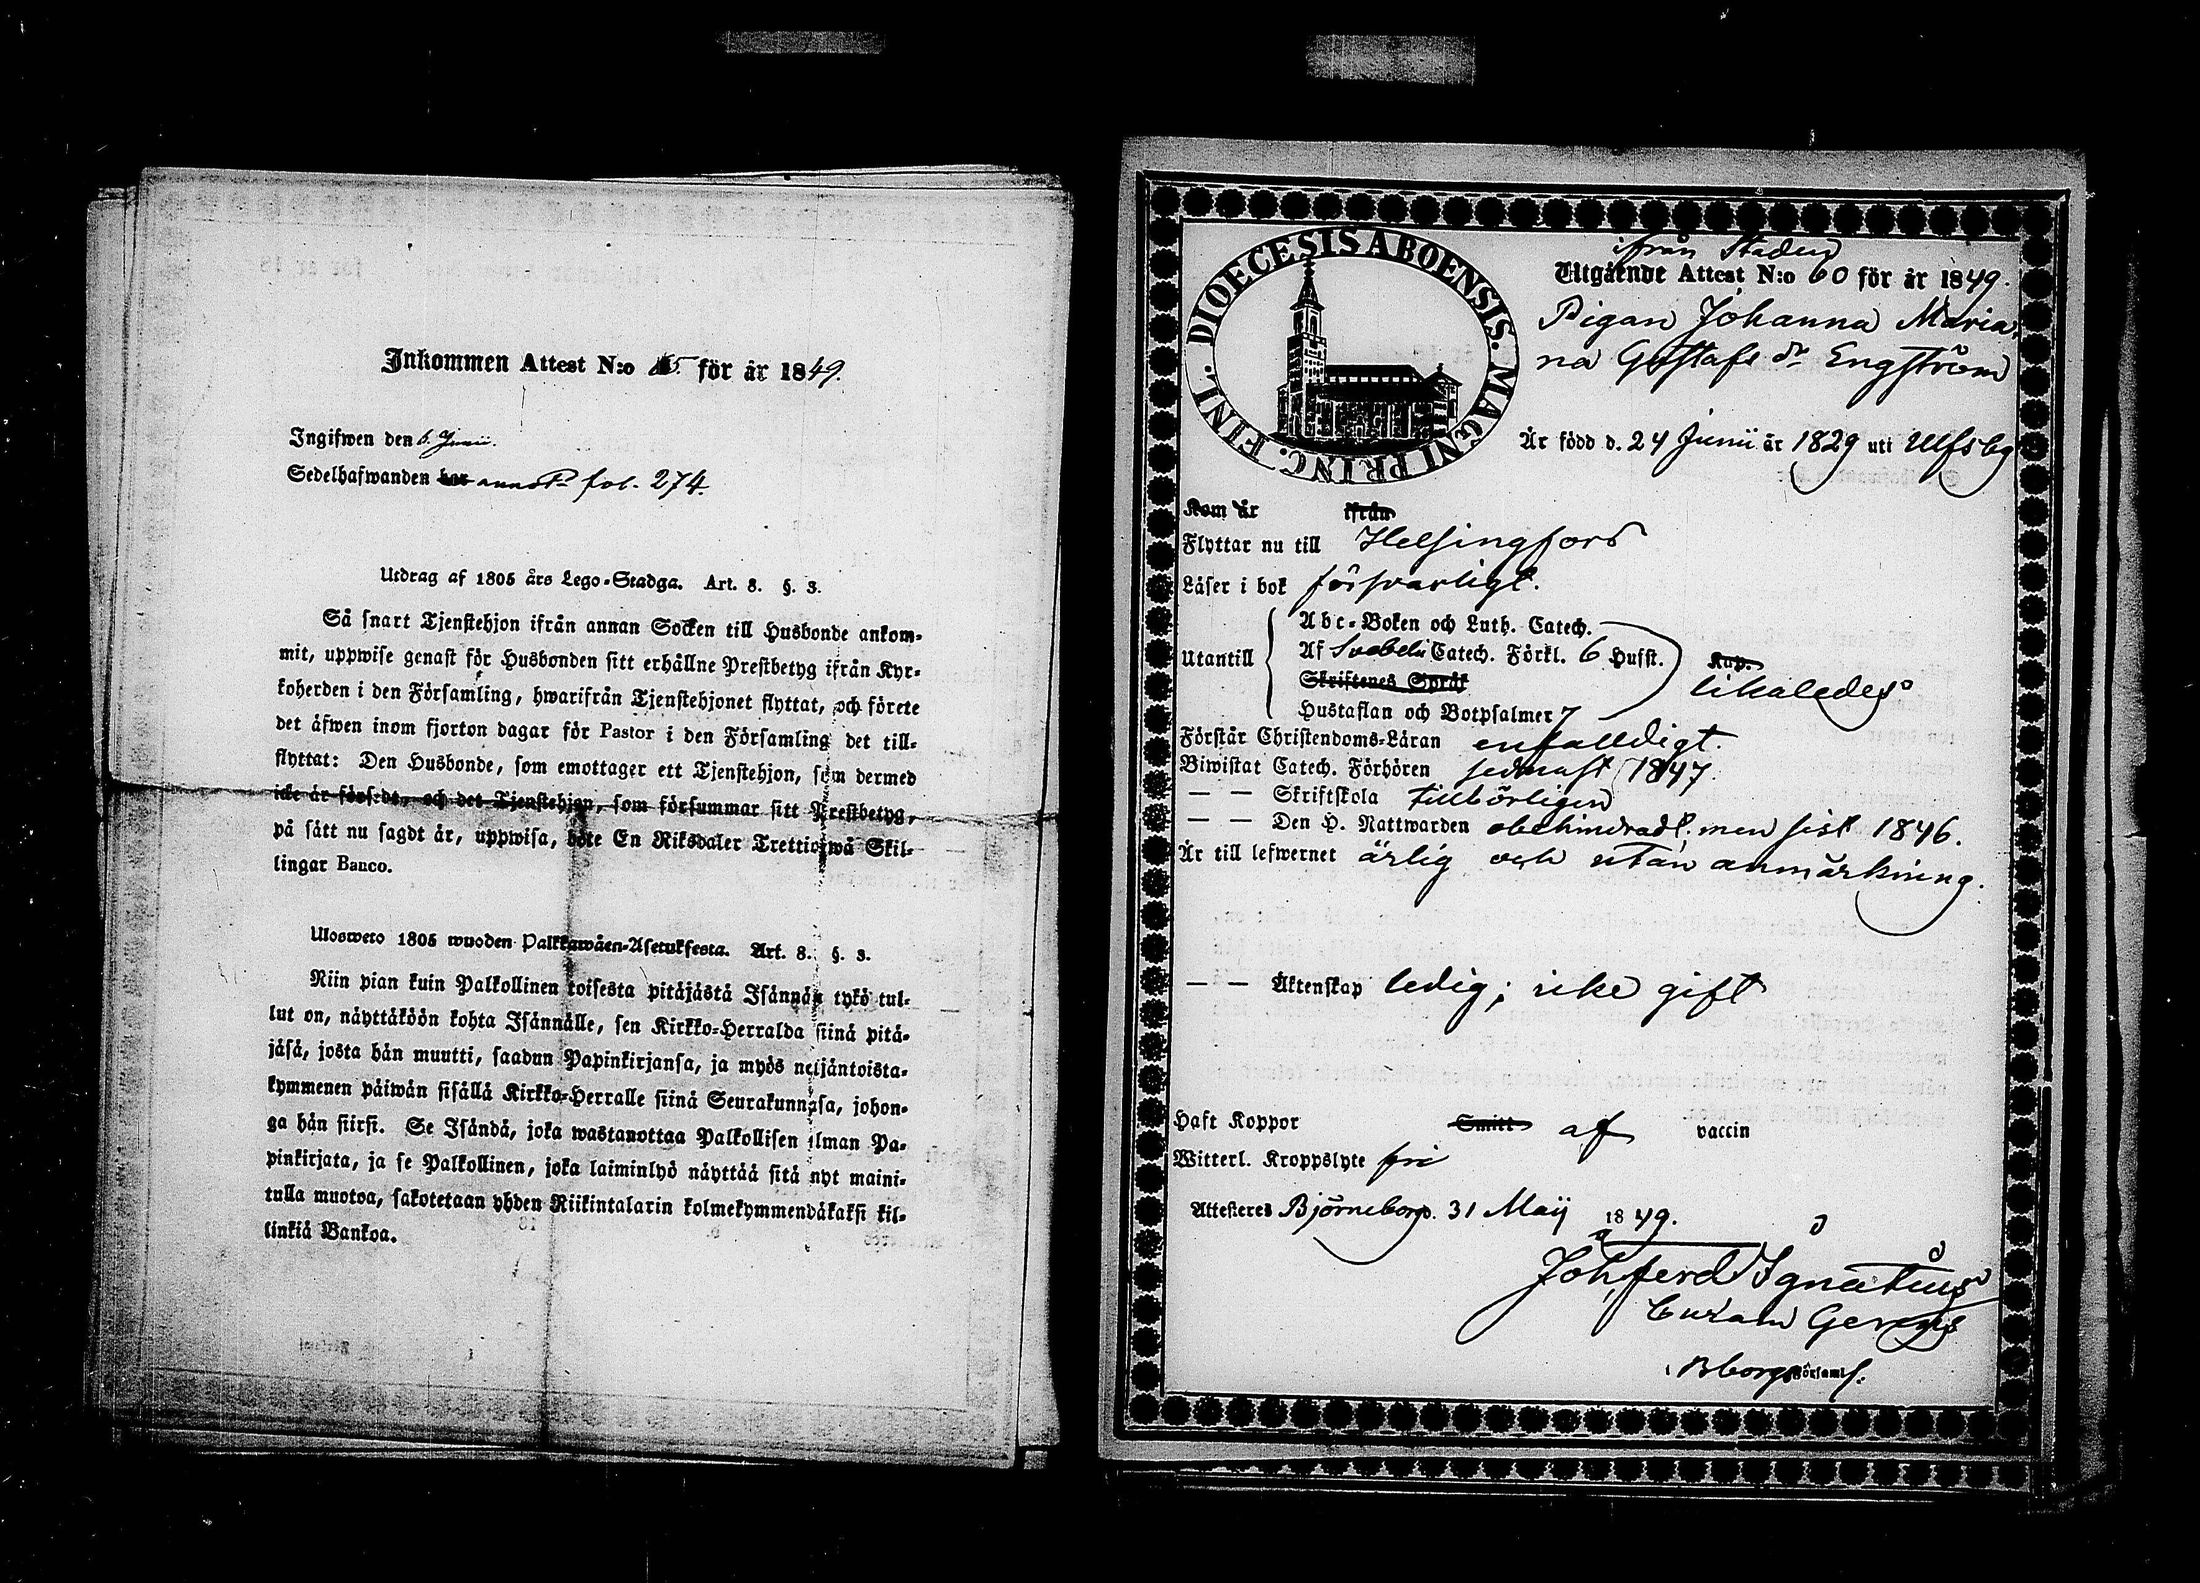 Inkommen Attest N:o 15. för år 1849.
Ingifwen den 6. Junii.
Sedelhafwanden har fol. 274.
Utdrag af 1805 års Lego-Stadga. Art. 8. §. 3.
Så snart Tjenstehjon ifrån annan Socken till Husbonde ankom-
mit, uppwise genast för Husbonden sitt erhållne Prestbetyg ifrån Kyr-
koherden i den Församling, hwarifrån Tjenstehjonet flyttat, och förete
det äfwen inom fjorton dagar för Pastor i den Församling det till-
flyttat: Den Husbonde, som emottager ett Tjenstehjon, som dermed
icke är försedt, och det Tjenstehjon, som försummar sitt Prestbetyg,
på sätt nu sagdt är, uppwisa, böte En Riksdaler Trettiotwå Skil-
lingar Banco.
Ulosweto 1805 wuoden Palkkawäen-Asetuksesta. Art. 8. §. 3.
Niin pian kuin Palkollinen toisesta pitäjästä Isännän tykö tul-
lut on, näyttäköön kohta Isännälle, sen Kirkko-Herralda siinä pitä-
jäsä, josta hän muutti, saadun Papinkirjansa, ja myös neljäntoista-
kymmenen päiwän sisällä Kirkko-Herralle siinä Seurakunnasa, johon-
ga hän siirsi. Se Isändä, joka wastanottaa Palkollisen ilman Pa-
pinkirjata, ja se Palkollinen, joka laiminlyö näyttää sitä nyt maini-
tulla muotoa, sakotetaan yhden Riikintalarin kolmekymmendäkaksi kil-
linkiä Bankoa.
DIOECESIS ABOENSIS. MAGNI PRINC. FINL.
ifrån Staden
Utgående Attest N:o 60 för år 1849.
Pigan Johanna Maria
na Gustafs dr Engström
Är född d. 24 Junii år 1829 uti Ulfsby
Kom år ifrån
Flyttar nu till Helsingfors
Läser i bok försvarligt.
Abc-Boken och Luth. Catech.
Utantill Af Svebelii Catech. Förkl. 6 Hufst. Kap.
Skriftenes Språk likaledes
Hustaflan och Botpsalmer 7
Förstår Christendoms-Läran enfalldigt.
Biwistat Catech. Förhören sednast 1847.
— — Skriftskola tillbörligen
— — Den H. Nattwarden obehindradt. men sist 1846.
Är till lefwernet ärlig och utan anmärkning.
— — Äktenskap ledig; icke gift
Haft Koppor Smitt af vaccin
Witterl. Kroppslyte fri
Attesteres Björneborg. 31 Maij 1849.
Joh, ferd Ignatius
Curam Gerens
i Bborgs Församl.